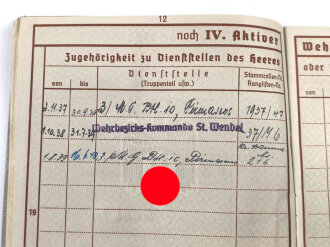 12
noch IV. Aktiver
Zugehörigkeit zu Dienststellen des Heeres
Dienststelle
(Truppenteil usw.)
Stammrollen-Nr.
Ranglisten-Nr.
von bis
2.11.37 30.9.38 3/ M.G. Btl. 10, Pirmasens 1937/47
1.10.38 31.7.39 Wehrbezirks-Kommando St. Wendel 37/M 6
1.8.39 3/ M.G. Btl. 10, 216
19
Weh
oder
von